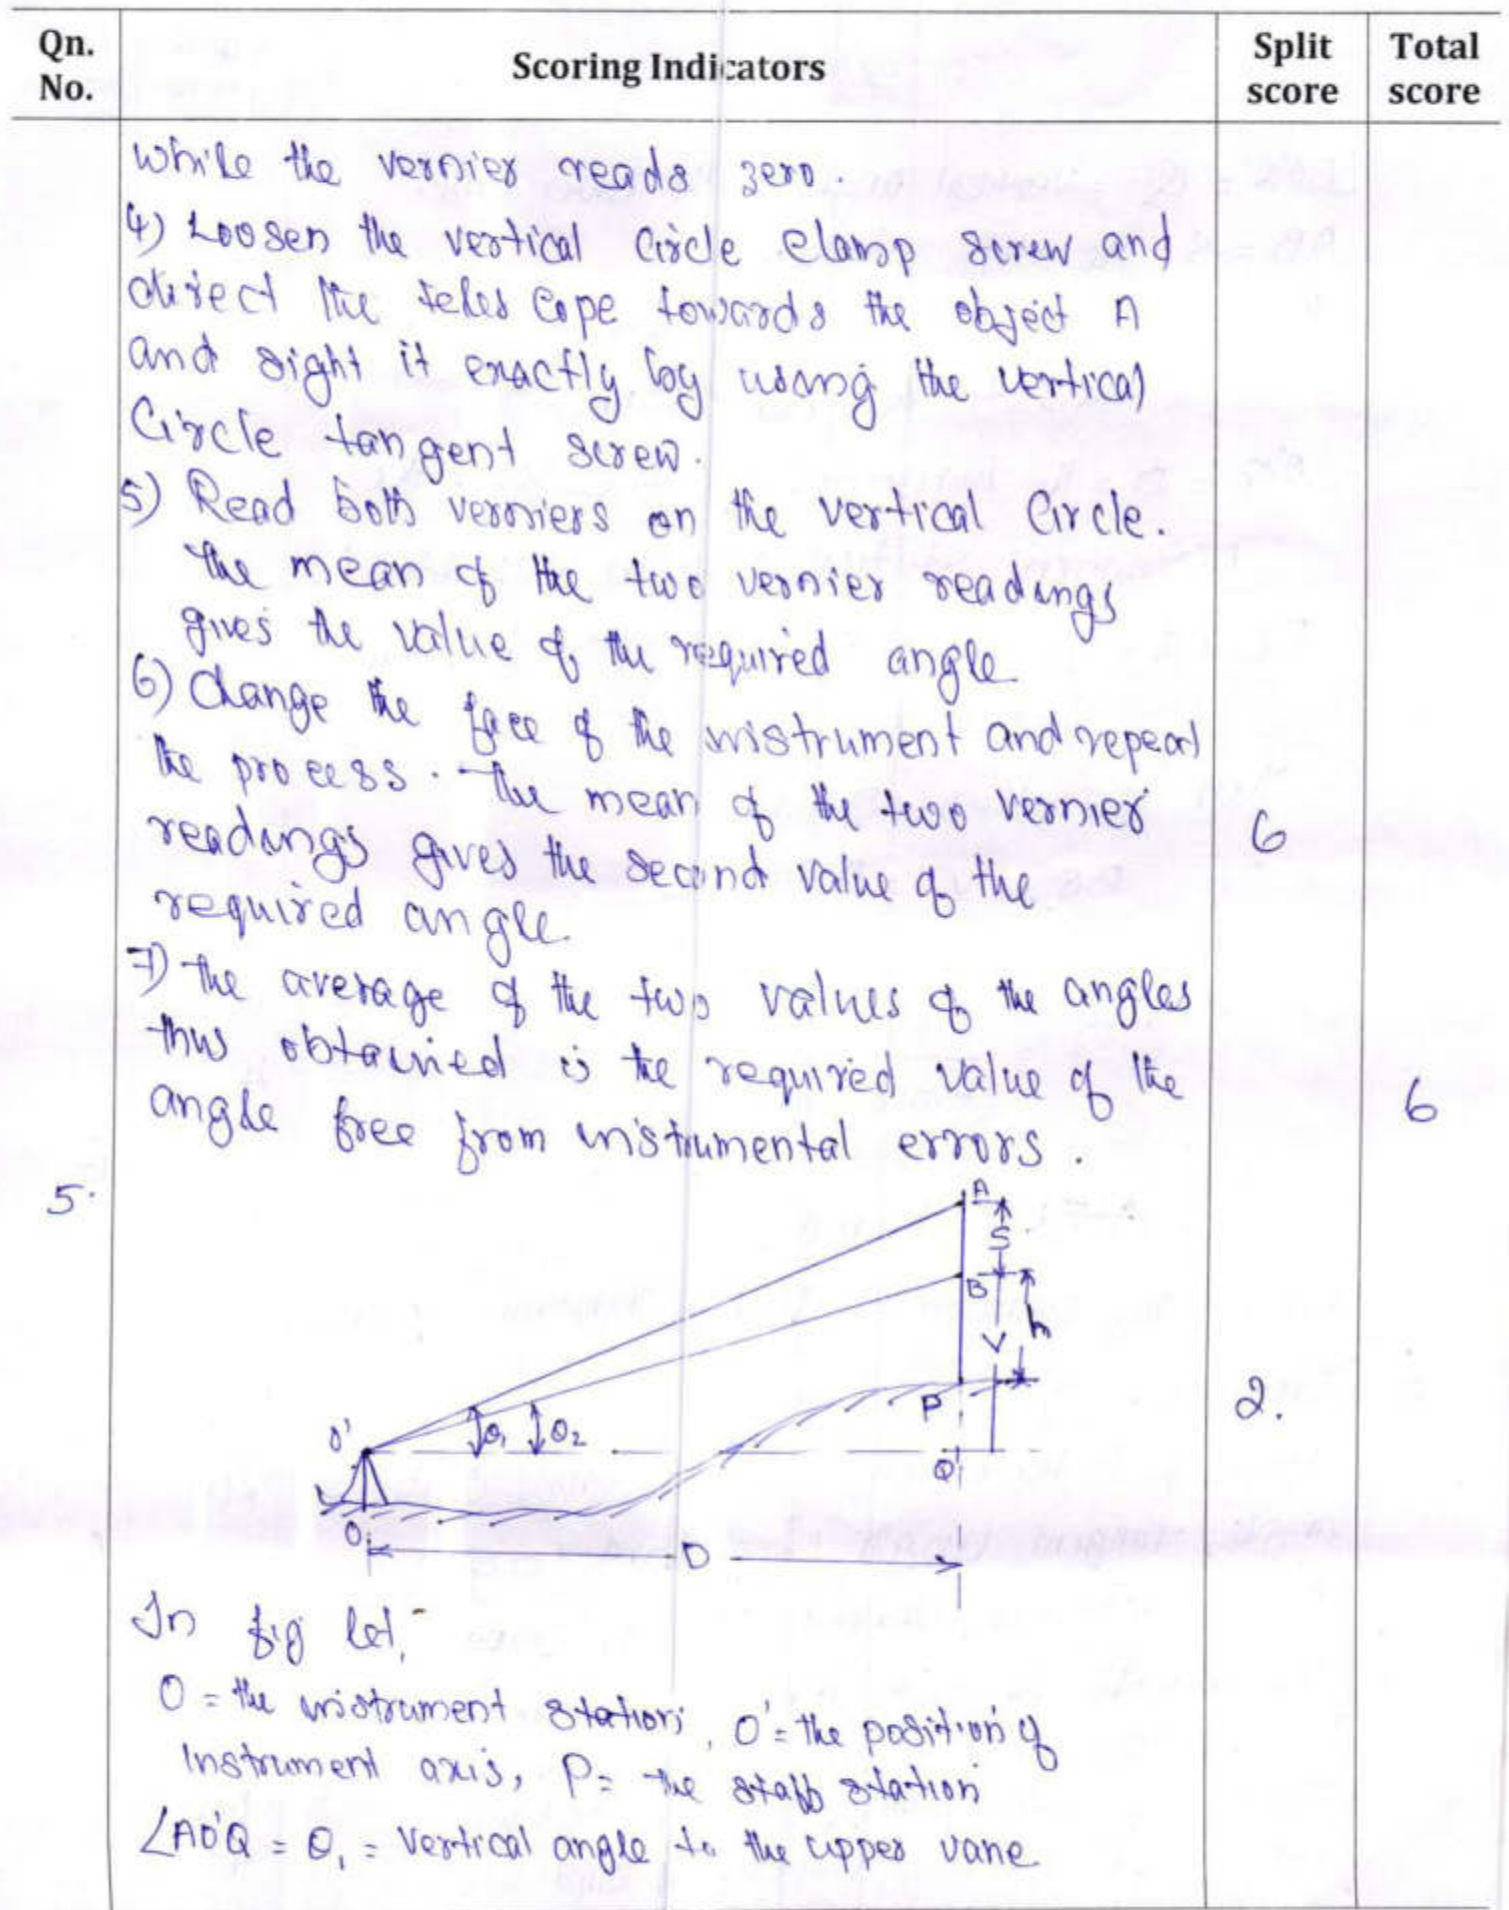 Qn. No.
Scoring Indicators
Split score
Total score
while the vernier reads zero.
4) Loosen the vertical circle clamp screw and
direct the telescope towards the object A
and sight it exactly by using the vertical
Circle tangent screw.
5) Read both verniers on the vertical Circle.
The mean of the two vernier readings
gives the value of the required angle.
6) Change the face of the instrument and repeat
the process. The mean of the two vernier
readings gives the second value of the
required angle.
6
7) The average of the two values of the angles
thus obtained is the required value of the
angle free from instrumental errors.
6
5.
A
S
B
h
V
P
O'
θ1
θ2
Q
O
D
2.
In fig let,
O = the instrument station, O' = the position of
Instrument axis, P = the staff station
∠AO'Q = θ1 = Vertical angle to the upper vane